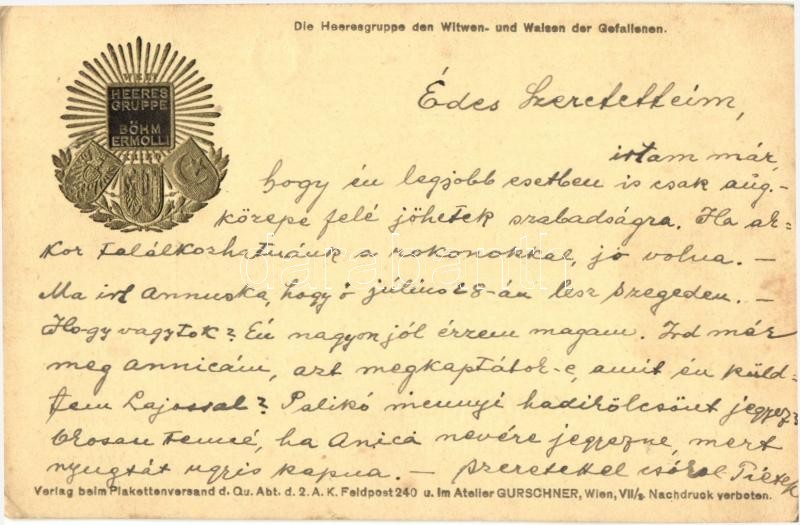 Die Heeresgruppe den Witwen- und Waisen der Gefallenen.
HEERES
GRUPPE
BÖHM
ERMOLLI
Édes Szeretetteim,
irtam már,
hogy én legjobb esetben is csak aug.-
közepe felé jöhetek szabadságra. Ha ak-
kor találkozhatnánk a rokonokkal, jó volna. –
Ma irt Annuska, hogy ő július 28-án lesz Szegeden. –
Hogy vagytok? Én nagyon jól érzem magam. Ird már
meg Annicám, azt megkaptátok-e, amit én küld-
tem Lajossal? Palikó mennyi hadikölcsönt jegyez?
Okosan tenné, ha Anica nevére jegyezne, mert
nyugtát ugyis kapna. – Szeretettel csókol
Verlag beim Plakettenversand d. Qu. Abt. d. 2. A. K. Feldpost 240 u. im Atelier GURSCHNER, Wien, VII/2. Nachdruck verboten.
darabanth